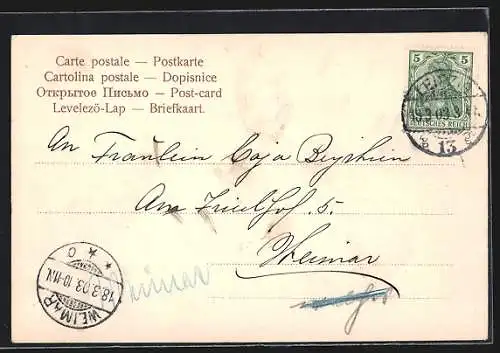 Carte postale — Postkarte
Cartolina postale — Dopisnice
Открытое Письмо — Post-card
Levelező-Lap — Briefkaart.
5 5
DEUTSCHES REICH
13
An Fräulein
Am Friedhof 5.
Weimar
WEIMAR
18.3.03.10-11.V.